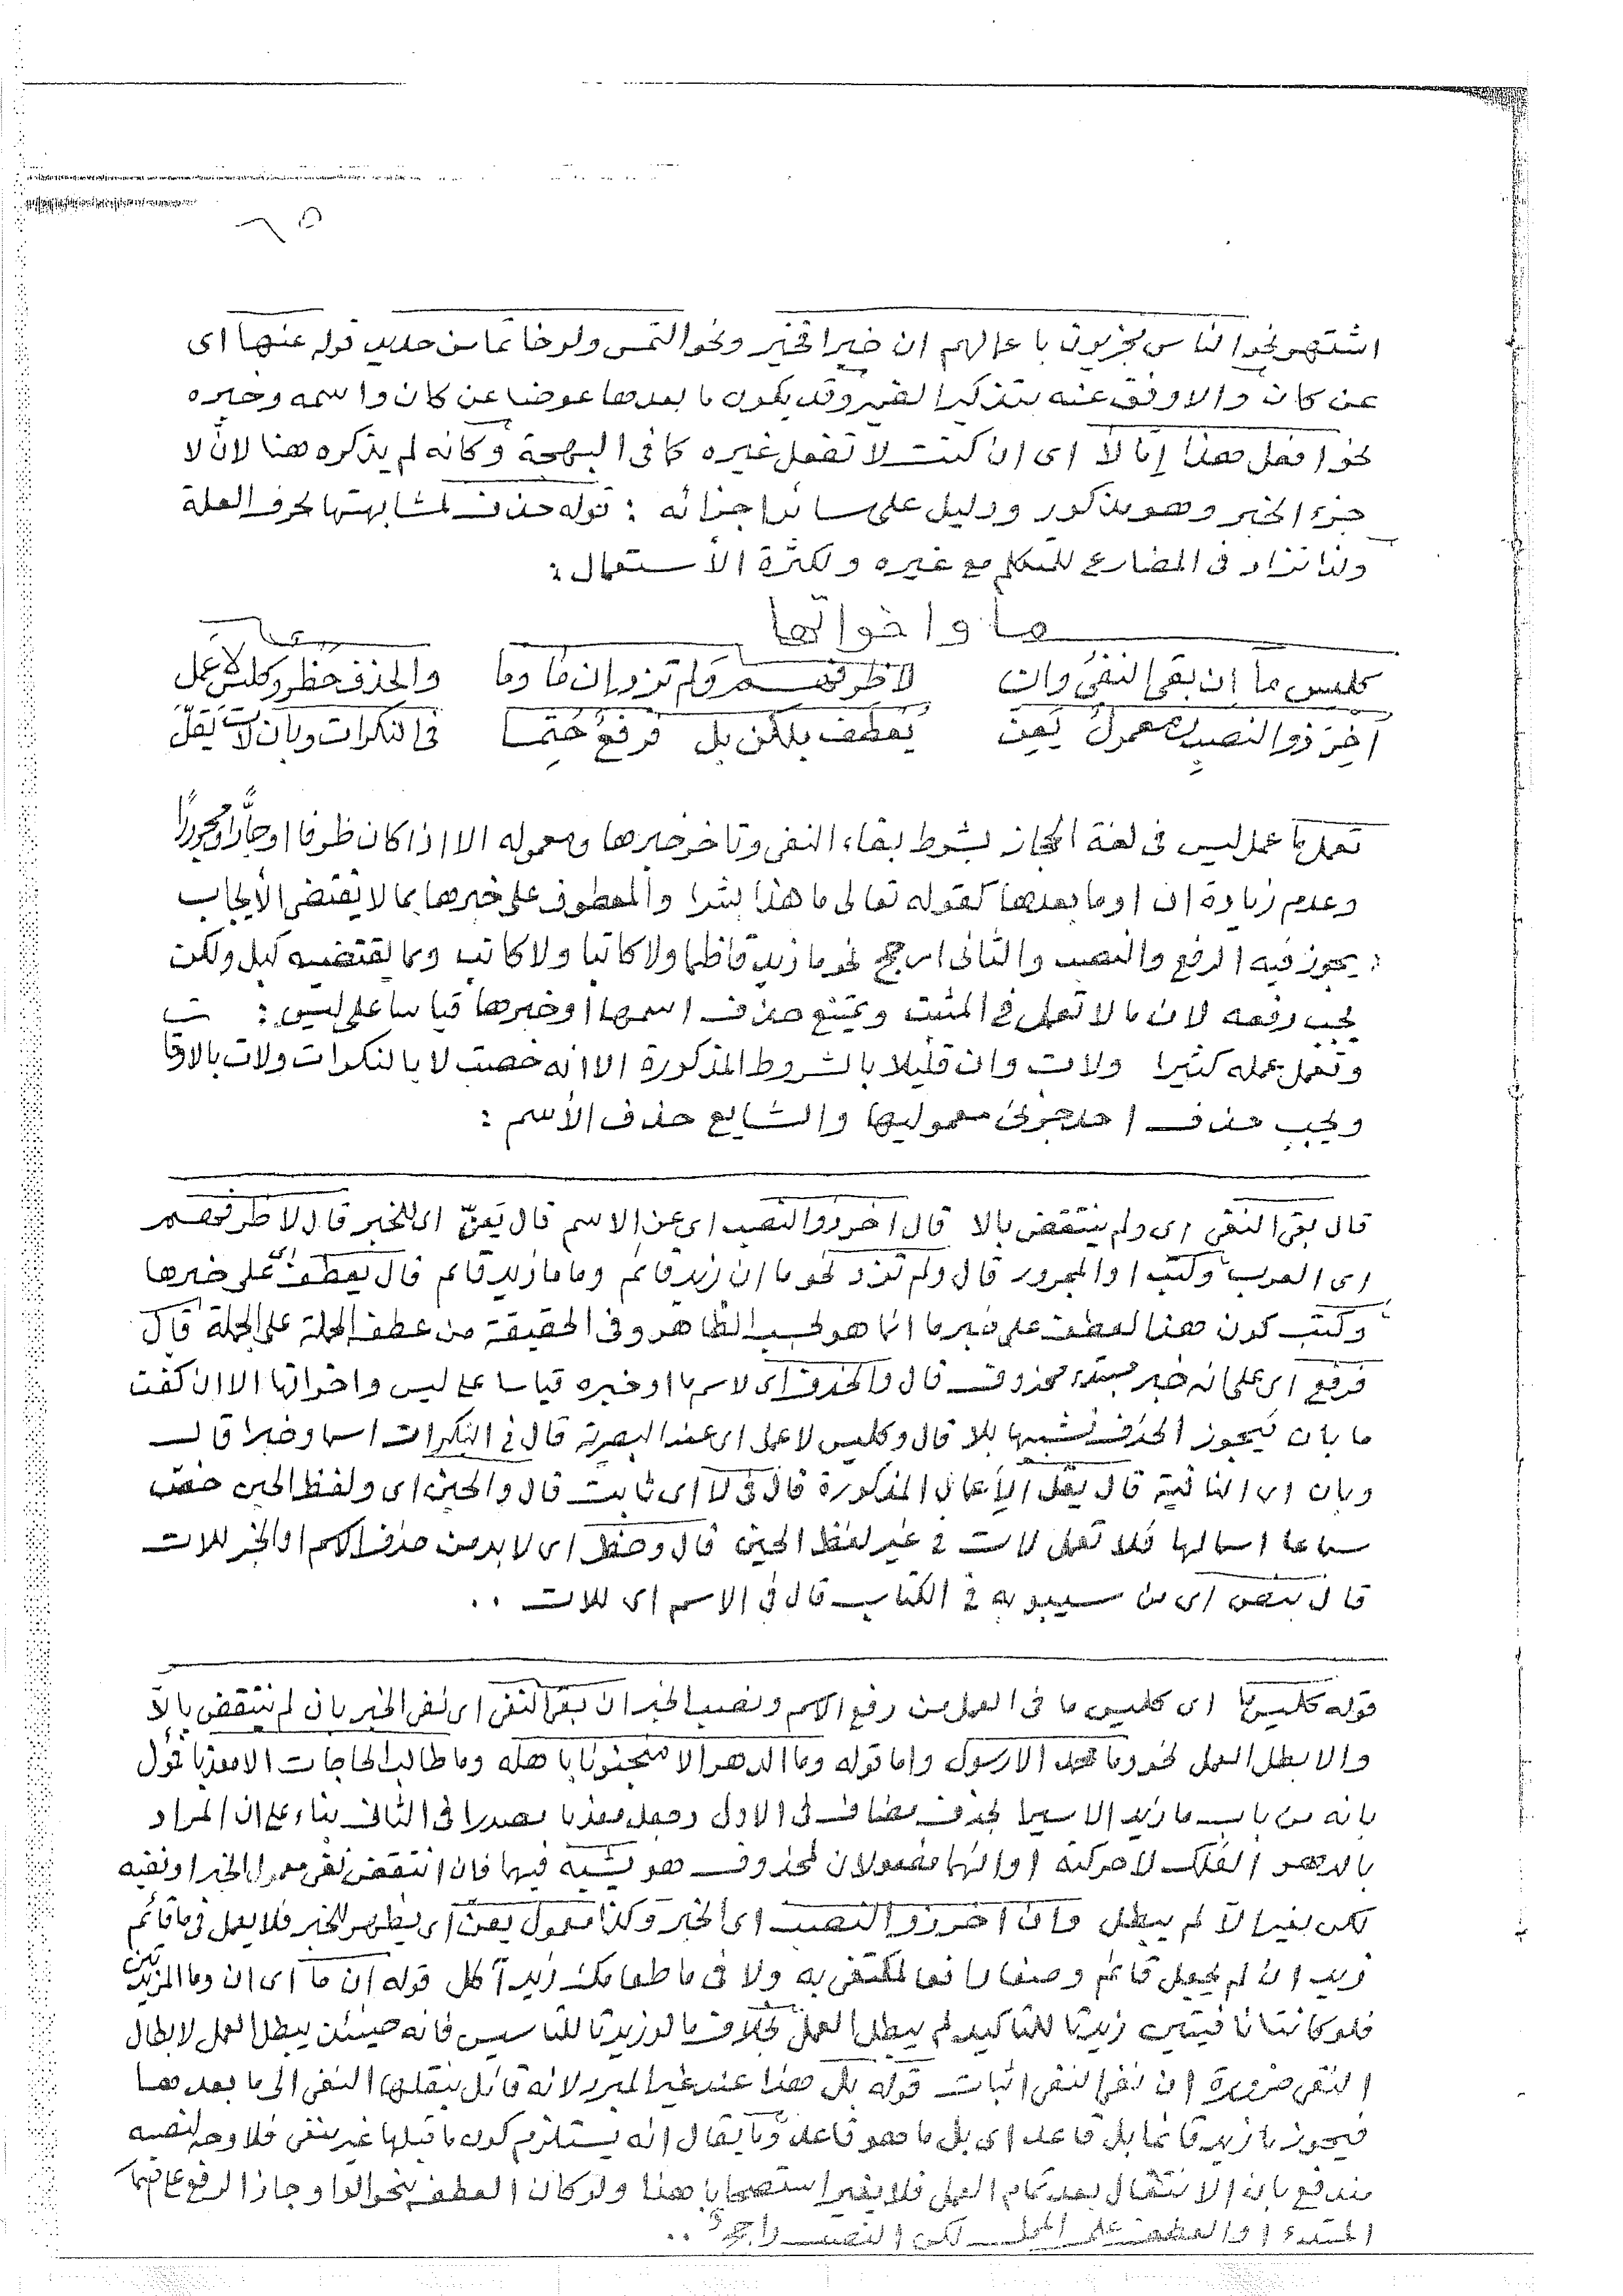 ٦٥
اشتهر نحو الناس مجزيون باعمالهم ان خيرا فخير ونحو التمس ولو خاتما من حديد قوله عنها اى
عن كان والاوفق عنه بتذكير الضمير وقد يكون ما بعدها عوضا عن كان واسمه وخبره
نحو افعل هذا إمّا لا اى ان كنت لا تفعل غيره كما فى البهجة وكانه لم يذكره هنا لانّ لا
جزء الخبر وهو مذكور ودليل على سائر اجزائه : قوله حذف لمشابهتها بحرف العلة
ولذا تزاد فى المضارع للمتكلم مع غيره ولكثرة الأستعمال :
ما واخواتها
كليس ما إن بقى النفى وان لا ظرفهم ولم تزد ان ما وما والحذف حظر وكليس لا عمل
أخّر ذو النصب معمول يعن يُعطف بلكن بل فرفعٌ حتما فى النكرات وبان لات يقلّ
تعمل ما عمل ليس فى لغة الحجاز بشرط بقاء النفى وتاخر خبرها ومعموله الا اذا كان ظرفا او جارّا ومجرورًا
وعدم زيادة ان او ما بعدها كقوله تعالى ما هذا بشرا والمعطوف على خبرها بما لا يقتضى الأيجاب
يجوز فيه الرفع والنصب والثانى ارجح نحو ما زيد قائما ولا كاتبا ولا كاتب وبما يقتضيه كبل ولكن
يجب رفعه لان ما لا تعمل فى المثبت ويمتنع حذف اسمها او خبرها قياسا على ليس :
وتعمل عمله كثيرا ولات وان قليلا بالشروط المذكورة الا انه خصت لا بالنكرات ولات بالاوقات
ويجب حذف احد جزئى معموليها والشايع حذف الأسم :
قال بقى النفى اى ولم ينتقض بالا قال اخر ذو النصب اى عن الاسم قال يعنّ اى للخبر قال لا ظرفهم
اى العرب وكتب او المجرور قال ولم تزد نحو ما ان زيد قائم وما ما زيد قائم قال يعطف اى على خبرها
وكتب كون هذا لعطف على خبر ما انما هو بحسب الظاهر وفى الحقيقة من عطف الجملة على الجملة قال
فرفع اى على انه خبر مبتدء محذوف قال والحذف اى لاسم ما او خبره قياسا على ليس واخواتها الا ان كفت
ما بان فيجوز الحذف تشبيها بلا قال وكليس لا عمل اى عند البصرية قال فى النكرات اسما وخبرا قال
وبان اى النافية قال يقل الأعمال المذكورة قال فى لا اى ثابت قال والحين اى ولفظ الحين خصت
سماعا اعمالها فلا تعمل لات فى غير لفظ الحين قال وحظر اى لابد من حذف الاسم او الخبر للات
قال بنص اى من سيبويه فى الكتاب قال فى الاسم اى للات ..
قوله كليس ما اى كليس ما فى العمل من رفع الاسم ونصب الخبر ان بقى النفى اى نفى الخبر بان لم ينتقض بالّا
والا بطل العمل نحو وما محمد الا رسول واما قوله وما الدهر الا منجنونا باهله وما طالب الحاجات الا معذبا فمؤول
بانه من باب ما زيد الا سيرا بحذف مضاف فى الاول وجعل معذبا مصدرا فى الثانى بناء على ان المراد
بالدهر الفلك لا حركته او انهما مفعولان لمحذوف هو يشبه فيهما فان انتقض نفى معمول الخبر او نفيه
لكن بغير الّا لم يبطل وان اخر ذو النصب اى الخبر وكذا معمول يعن اى يظهر للخبر فلا يعمل فى ما قائم
زيد ان لم يجعل قائم وصفا رافعا لمكتفى به ولا فى ما طعامك زيد آكل قوله ان ما اى ان وما المزيدتين
فلو كانتا نافيتين زيدتا للتاكيد لم يبطل العمل بخلاف ما لو زيدتا للتاسيس فانه حينئذ يبطل العمل لابطال
النفى ضرورة ان نفى النفى اثبات قوله بل هذا عند غير المبرد لانه قائل بنقلها النفى الى ما بعدها
فيجوز ما زيد قائما بل قاعدا اى بل ما هو قاعدا وما يقال انه يستلزم كون ما قبلها غير منفى فلا وجه لنصبه
مندفع بان الانتقال بعد تمام العمل فلا يغير استصحابا هذا ولو كان العطف بنحو الواو جاز الرفع على اضمار
المبتدء او العطف على المحل لكن النصب راجح ..